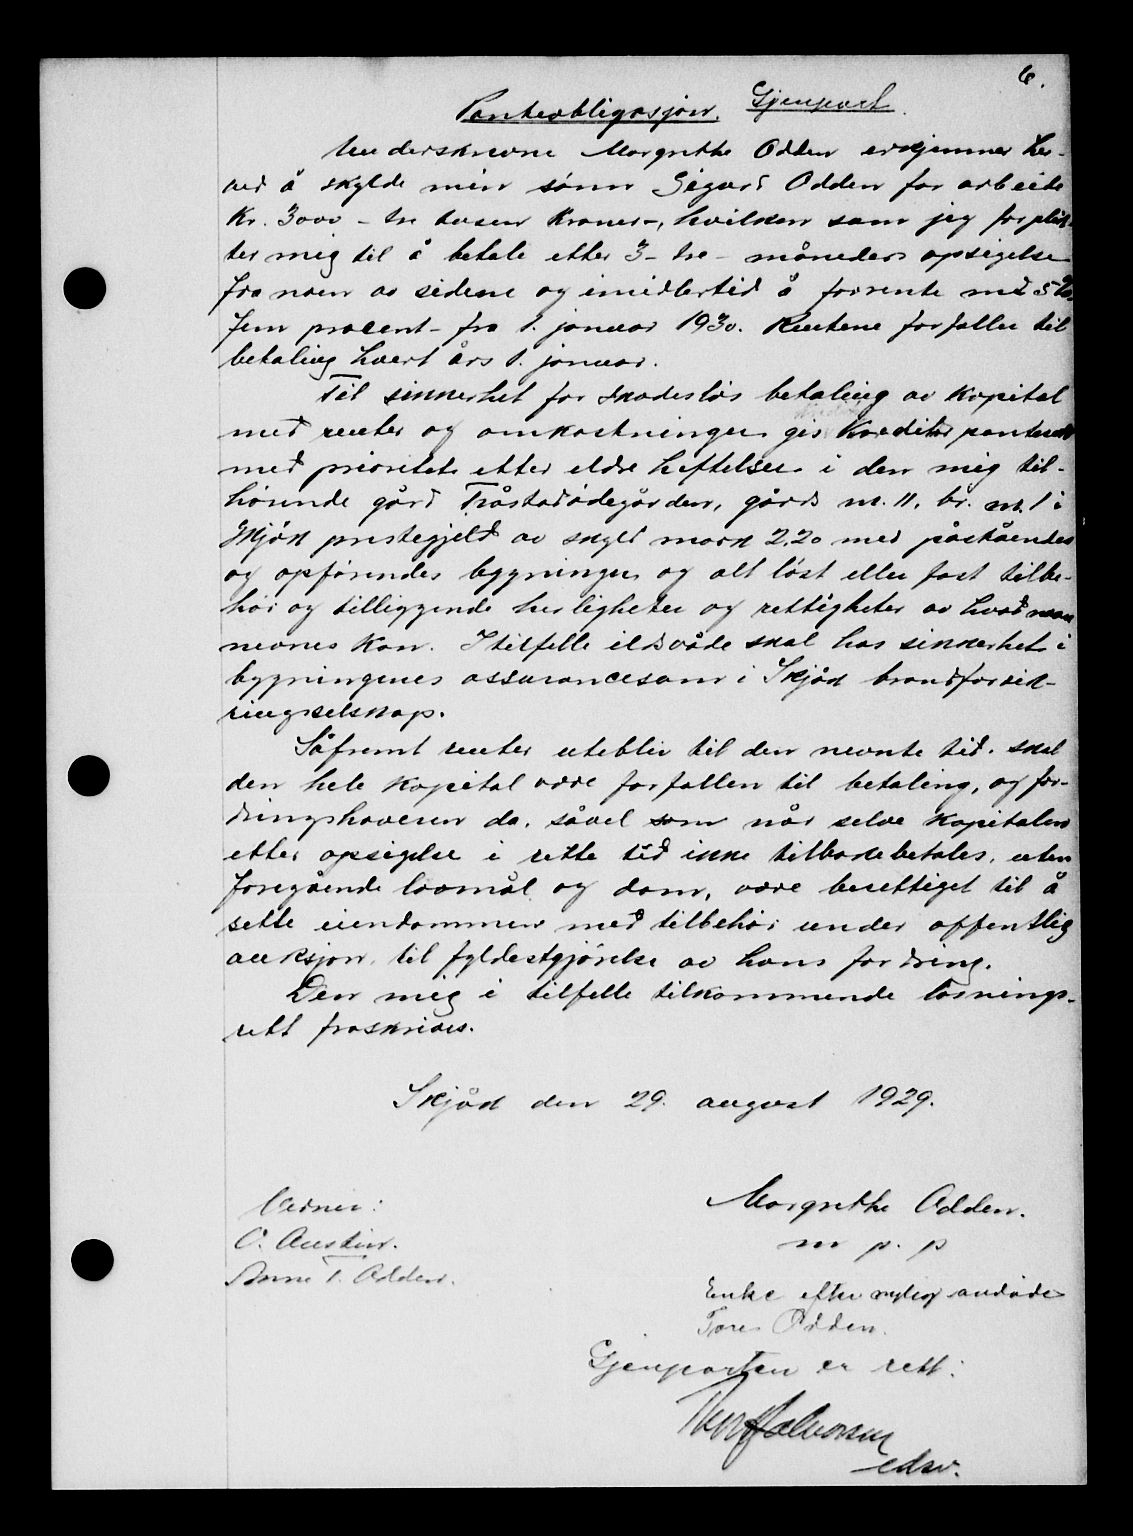 6.
Panteobligasjon. Gjenpart.
Underskrevne Margrethe Odden erkjenner her-
ved å skylde min sønn Sigurd Odden for arbeide
Kr. 3000 - tre tusen kroner-, hvilken sum jeg forplik-
ter mig til å betale etter 3- tre - måneders opsigelse
fra noen av sidene og imidlertid å forrente med 5 %
fem procent - fra 1. januar 1930. Rentene forfaller til
betaling hvert års 1. januar.
Til sikkerhet for skadesløs betaling av kapital
med renter og omkostninger gis kreditor panterett
med prioritet etter eldre heftelser i den mig til-
hørende gård Tråstadødegården, gårds nr. 11, br. nr. 1 i
Skjåk prestegjeld av skyld mark 2,20 med påståendes
og opførendes bygninger og alt løst eller fast tilbe-
hør og tilliggende herligheter og rettigheter av hvad navn
nevnes kan. I tilfelle ildsvåde skal has sikkerhet i
bygningenes assurancesum i Skjåk brandforsik-
ringsselskap.
Såfremt renter utebliv til den nevnte tid. skal
den hele kapital være forfallen til betaling, og for-
dringshaveren da, såvel som når selve kapitalen
etter opsigelse i rette tid ikke tilbakebetales, uten
foregående lovmål og dom, være berettiget til å
sette eiendommen med tilbehør under offentlig
auksjon til fyldestgjørelse av hans fordring.
Den mig i tilfelle tilkommende løsnings-
rett fraskrives.
Skjåk den 29. august 1929.
Vidner:
Margrethe Odden.
O. Austin.
m p. p
Anne T. Odden.
Enke efter nylig avdøde
Tore Odden.
Gjenparten er rett:
Halvorsen
edsv.